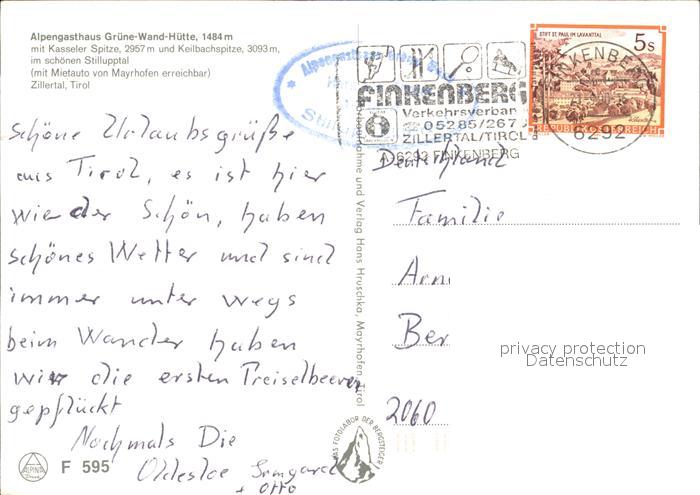 Alpengasthaus Grüne-Wand-Hütte, 1484 m
mit Kasseler Spitze, 2957 m und Keilbachspitze, 3093 m,
im schönen Stillupptal
(mit Mietauto von Mayrhofen erreichbar)
Zillertal, Tirol
schöne Urlaubsgrüße
aus Tirol, es ist hier
wieder Schön, haben
schönes Wetter und sind
immer unter wegs
beim Wander haben
wir die ersten Preiselbeeren
gepflückt
Nochmals Die
Oldesloe Irmgard
+ Otto
ALPINA
F 595
DAS FOTOLABOR DER BERGSTEIGER
und Verlag Hans Hruschka, Mayrhofen, Tirol
FINKENBERG
Verkehrsverban
05285/267
ZILLERTAL/TIROL
A-6292 FINKENBERG
STIFT ST. PAUL IM LAVANTTAL
5 S
REPUBLIK ÖSTERREICH
FINKENBERG
6292
Deutschland
Familie
Arn
Ber
2060
privacy protection
Datenschutz